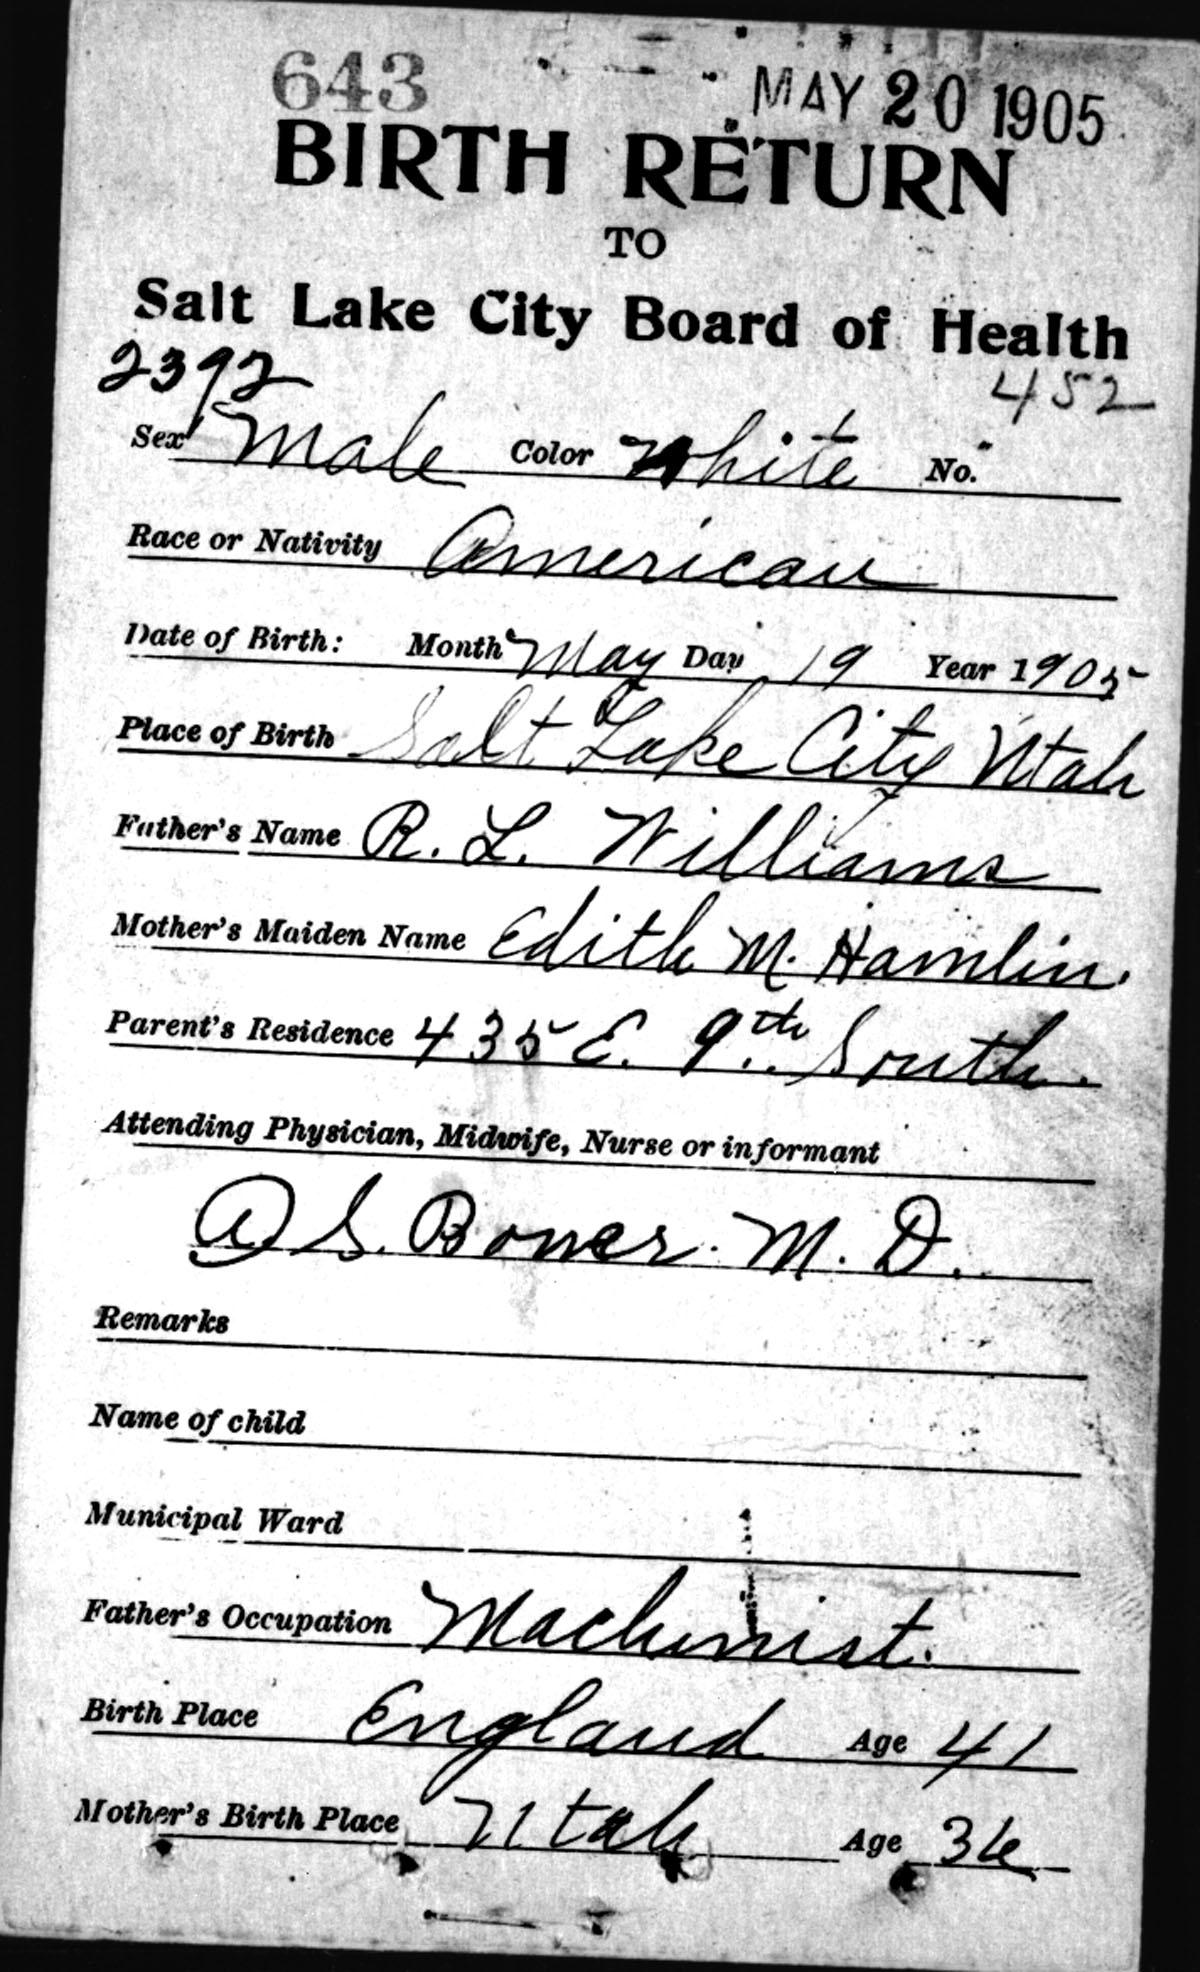 643 MAY 20 1905
BIRTH RETURN
TO
Salt Lake City Board of Health
2392 452
Sex Male Color White No.
Race or Nativity American
Date of Birth: Month May Day 19 Year 1905
Place of Birth Salt Lake City Utah
Father's Name R. L. Williams
Mother's Maiden Name Edith M. Hamlin.
Parent's Residence 435 E. 9th South.
Attending Physician, Midwife, Nurse or informant
A S. Bower. M. D.
Remarks
Name of child
Municipal Ward
Father's Occupation Machinist.
Birth Place England Age 41
Mother's Birth Place Utah Age 36